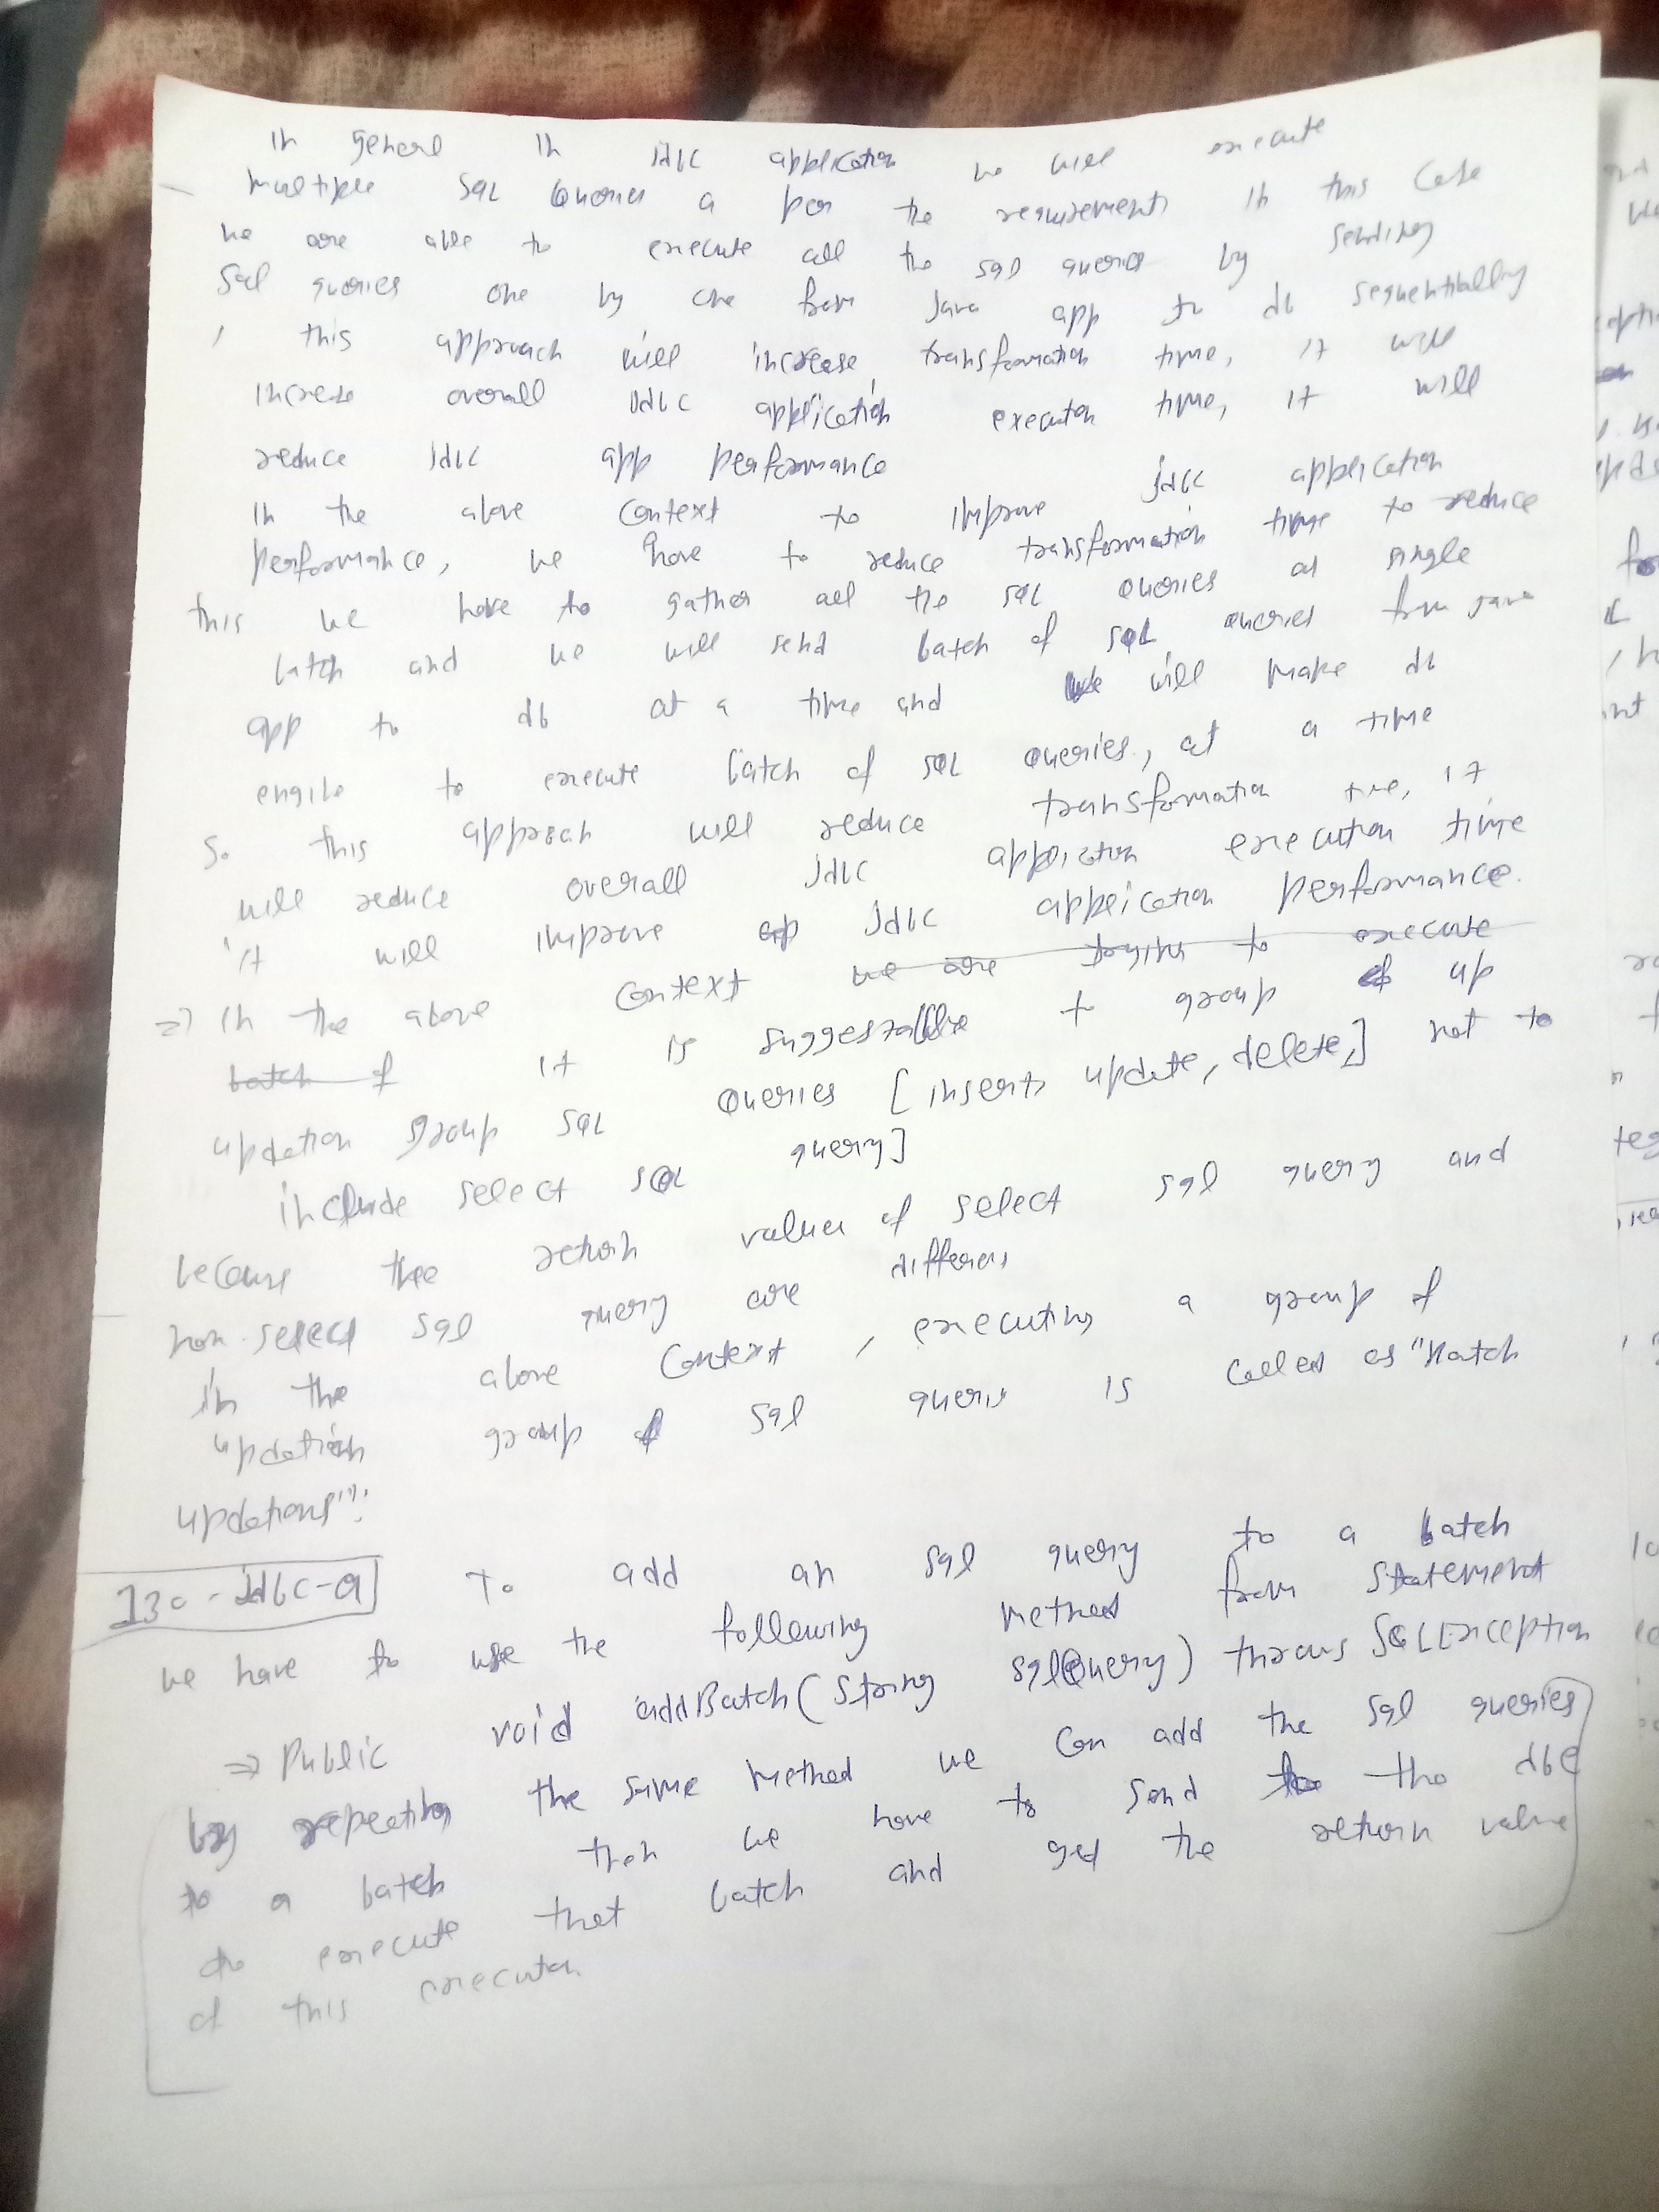 In general in jdbc application we will execute
multiple SQL Queries a per the requirements in this case
we are able to execute all the sql queries by sending
Sql queries one by one from Java app to db sequentially
, this approach will increase transformation time, it will
increase overall Jdbc application execution time, it will
reduce jdbc app performance
In the above context to improve jdbc application
performance, we have to reduce transformation time to reduce
this we have to gather all the SQL Queries as single
batch and we will send batch of SQL queries from java
app to db at a time and we will make db
engine to execute batch of SQL Queries, at a time
So this approach will reduce transformation time, it
will reduce overall Jdbc application execution time
it will improve Jdbc application performance.
=> In the above context we are trying to execute
batch of it is suggestable to group up
updation group SQL Queries [inserts update, delete,] not to
include select SQL query]
because thee return values of select sql query and
non-select sql query are different
in the above context, executing a group of
updation group of sql queris is called as "Batch
updations":
130-Jdbc-a To add an sql query to a batch
we have to use the following method from Statement
=> Public void addBatch(String sqlQuery) throws SQLException
by repeating the same method we can add the sql queries
to a batch then we have to send the dbe
to execute that batch and get the return value
of this execution